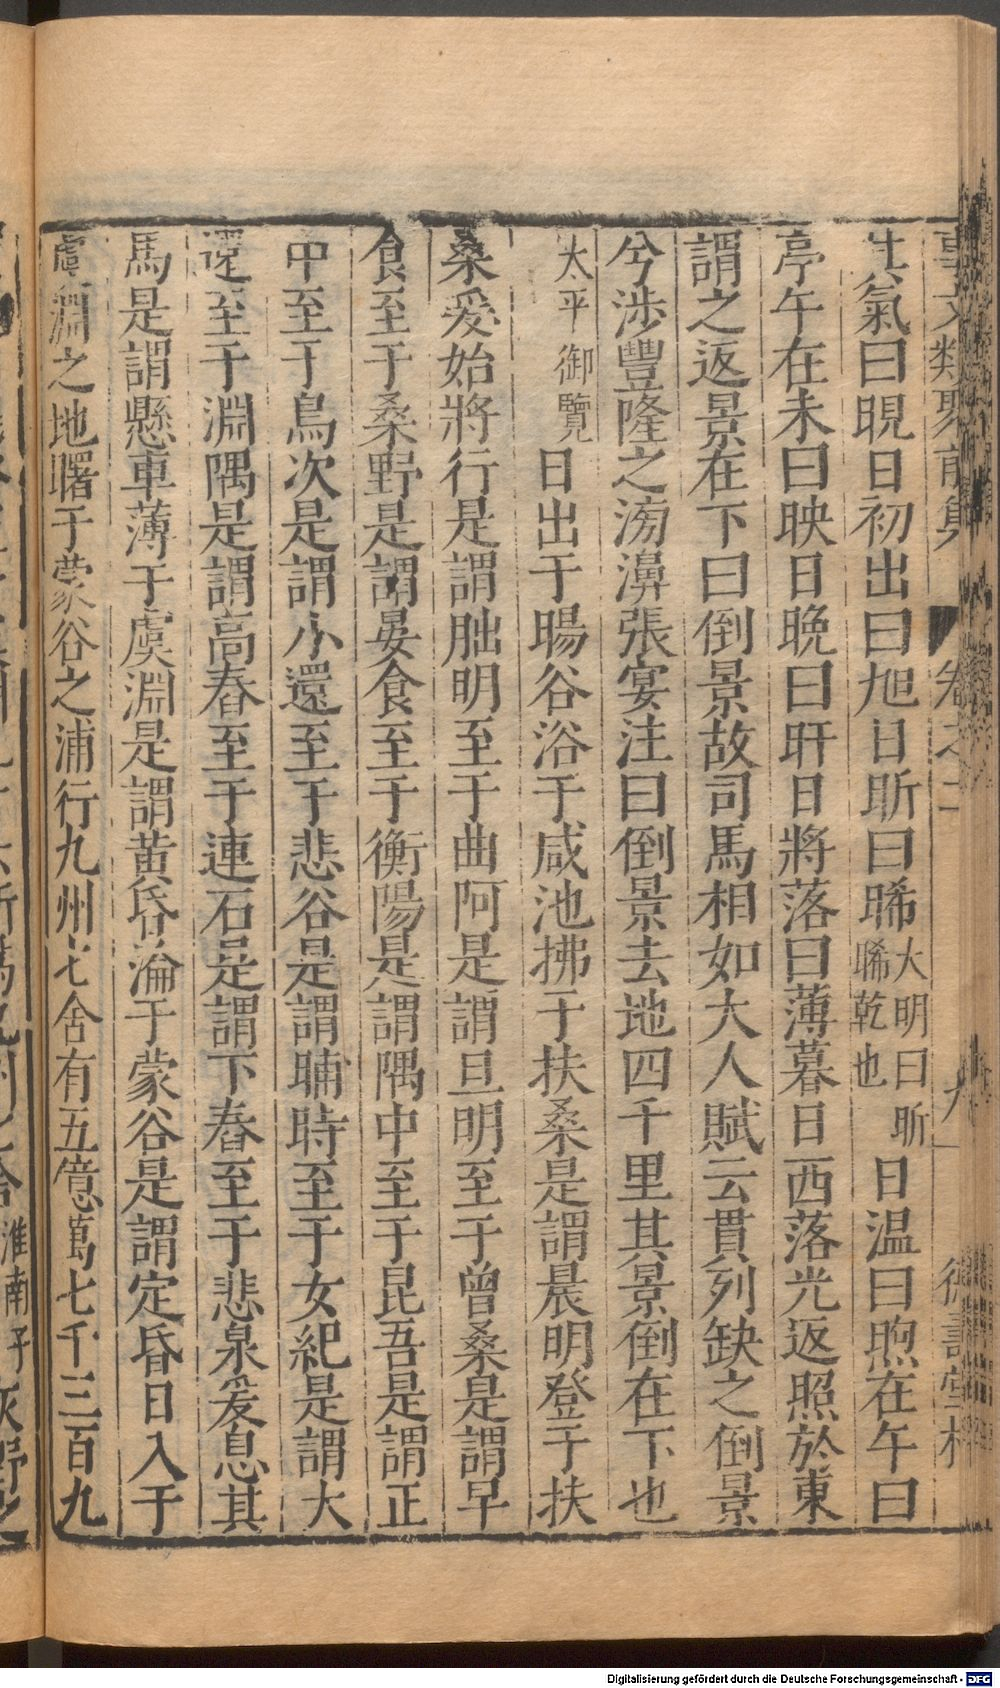 事文類聚前集 卷之二 九 德壽堂梓
生氣曰晛日初出曰旭日昕曰晞大明曰昕晞乾也日温曰煦在午曰
亭午在未曰昳日晚曰旰日將落曰薄暮日西落光返照於東
謂之返景在下曰倒景故司馬相如大人賦云貫列缺之倒景
兮涉豐隆之滂濞張宴注曰倒景去地四千里其景倒在下也
太平御覽日出于暘谷浴于咸池拂于扶桑是謂晨明登于扶
桑爰始將行是謂朏明至于曲阿是謂旦明至于曾桑是謂早
食至于桑野是謂晏食至于衡陽是謂隅中至于昆吾是謂正
中至于鳥次是謂小還至于悲谷是謂晡時至于女紀是謂大
還至于淵隅是謂高舂至于連石是謂下舂至于悲泉爰息其
馬是謂懸車薄于虞淵是謂黄昏淪于蒙谷是謂定昏日入于
虞淵之地曙于蒙谷之浦行九州七舍有五億萬七千三百九
淮南子
Digitalisierung gefördert durch die Deutsche Forschungsgemeinschaft - DFG